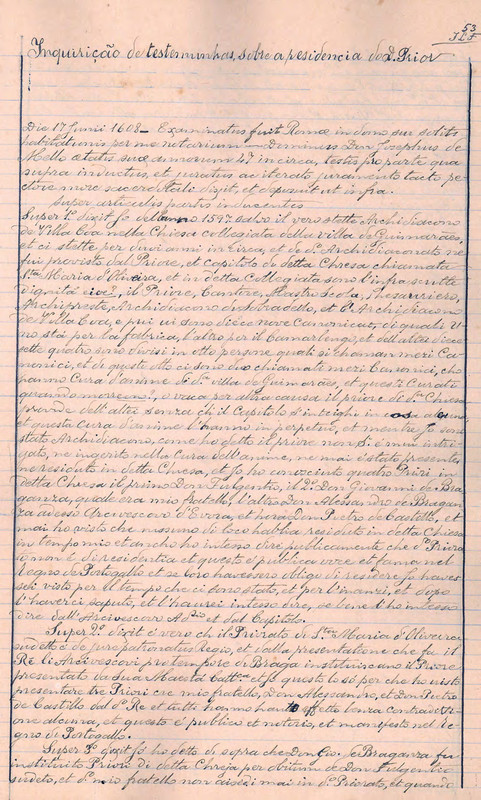 53
Inquirição de testemunhas, sobre a residencia do D. Prior
Die 17 Junii 1608 — Examinatus fuit Romæ in domo suæ solitæ
habitationis per me notarium — Dominus Don Josephus de
Mello ætatis suæ annorum 47 in circa, testis pro parte qua
supra inductus, et juratus ac iterato juramento tacto pe-
ctore more sacerdotali dixit, et deposuit ut infra.
Super articulis partis inducentis
Super 1.º dixit Jo dell anno 1597 salvo il vero stette Archidiacono
de Villa Cova nella Chiesa collegiata della villa de Guimarães,
et ci stette per dieci anni in circa, et de d.º Archidiaconato ne
fui provisto dal Priore, et capitolo de detta Chiesa chiamata
S.ta Maria d'Oliveira, et in detta Collegiata sono l'infrascritte
dignità cioè, il Priore, Cantore, Mastroscola, Thesauriero,
Archipreste, Archidiacono di Sobradello, et l'Archidiacono
de Villa Cova, e più vi sono dieci nove Canonicati, di quali u-
no stà per la fabrica, l'altro per il Camarlengo, et dell'altri dieci
sette quatro sono divisi in otto persone quali si chiaman mezi Ca-
nonici, et di queste otto ci sono due chiamati mezi Canonici, che
hanno Cura d'anime di d.ª villa de Guimarães, et questi Curati
quando moreno, o vaca per altra causa il priore di d.ª Chiesa
prende dell'altri senza ch il Capitolo s'intrighi in cosa alcuna
et questa Cura d'anime l'hanno in perpetuo, et mentre Jo sono
stato Archidiacono, come ho detto il priore non si è mai intri-
gato, ne ingerito nella Cura dell'anime, ne mai è stato presente,
ne residuto in detta Chiesa, et Jo ho conosciuto quatro Priori in
detta Chiesa il primo Don Fulgentio, il 2.º Don Giovanni de Bra-
ganza, quale era mio fratello, l'altro Don Alessandro de Bragan-
za adesso Arcivescovo d'Evora, et hora Don Pietro de Castello, et
mai ho visto che nessuno di loro habbia residuto in detta Chiesa
in tempo mio et anche ho inteso dire publicamente che d.º Priora-
to non è di residentia et questo è publica voce et fama nel
Regno de Portogallo et se loro havessero obligo di residere Jo haves-
sei visto per il tempo che ci sono stato, et per l'inanzi, et dopo
l'haverei saputo, et l'haurei inteso dire, se bene l'ho inteso
dire dall'Arcivescovo et dal Capitolo.
Super 2.º dixit è vero ch il Priorato di S.ta Maria d'Oliveira
sudetto è de jure patronatus Regio, et dalla presentatione che fa il
Rè li Arcivescovi pro tempore di Braga instituiscano il Priore
presentato da Sua Maestà Catt.ca et Jo questo lo sò per che ho visto
presentare tre Priori cioe mio fratello, Don Alessandro, et Don Pietro
de Castillo dal d.º Re et tutti hanno hauto effetto senza contradi-
tione alcuna, et questo è publico et notorio, et manifesto nel Re-
gno di Portogallo.
Super 3.º dixit Jo ho detto di sopra che Don Gio. de Braganza fu
instituito Priori di detta Chiesa per obitum de Don Fulgentio
sudeto, et d.º mio fratello non risedi mai in d.º Priorato, et quando